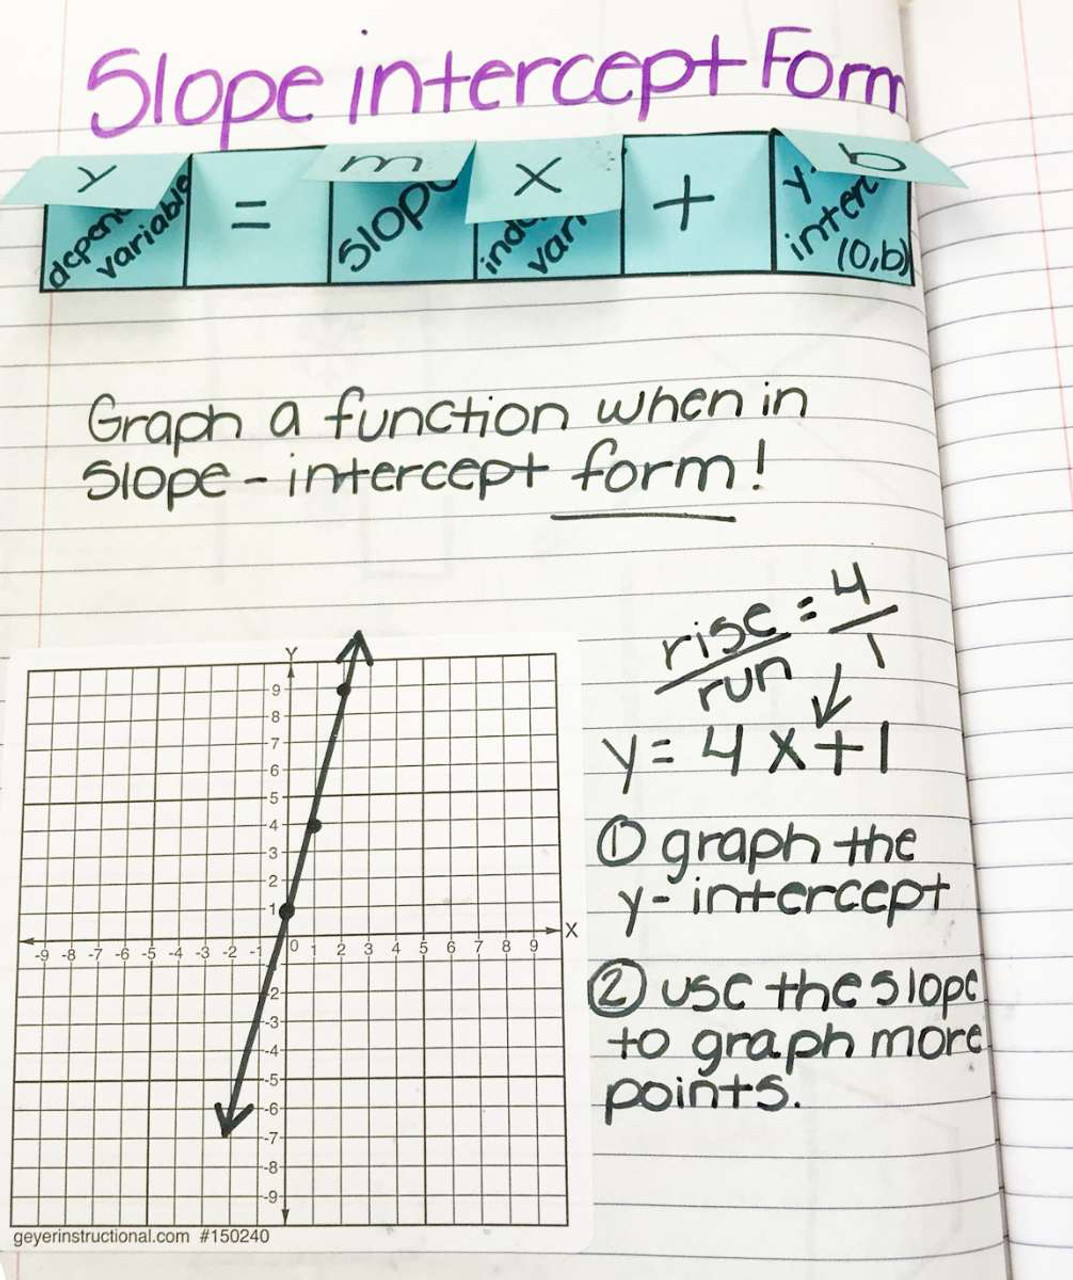 Slope intercept Form
y = m x + b
slope
(0,b)
variable
Graph a function when in
slope - intercept form!
rise = 4
run 1
y = 4x + 1
① graph the
y - intercept
② use the slope
to graph more
points.
Y
9
8
7
6
5
4
3
2
1
-9 -8 -7 -6 -5 -4 -3 -2 -1 0 1 2 3 4 5 6 7 8 9 X
-2
-3
-4
-5
-6
-7
-8
-9
geyerinstructional.com #150240